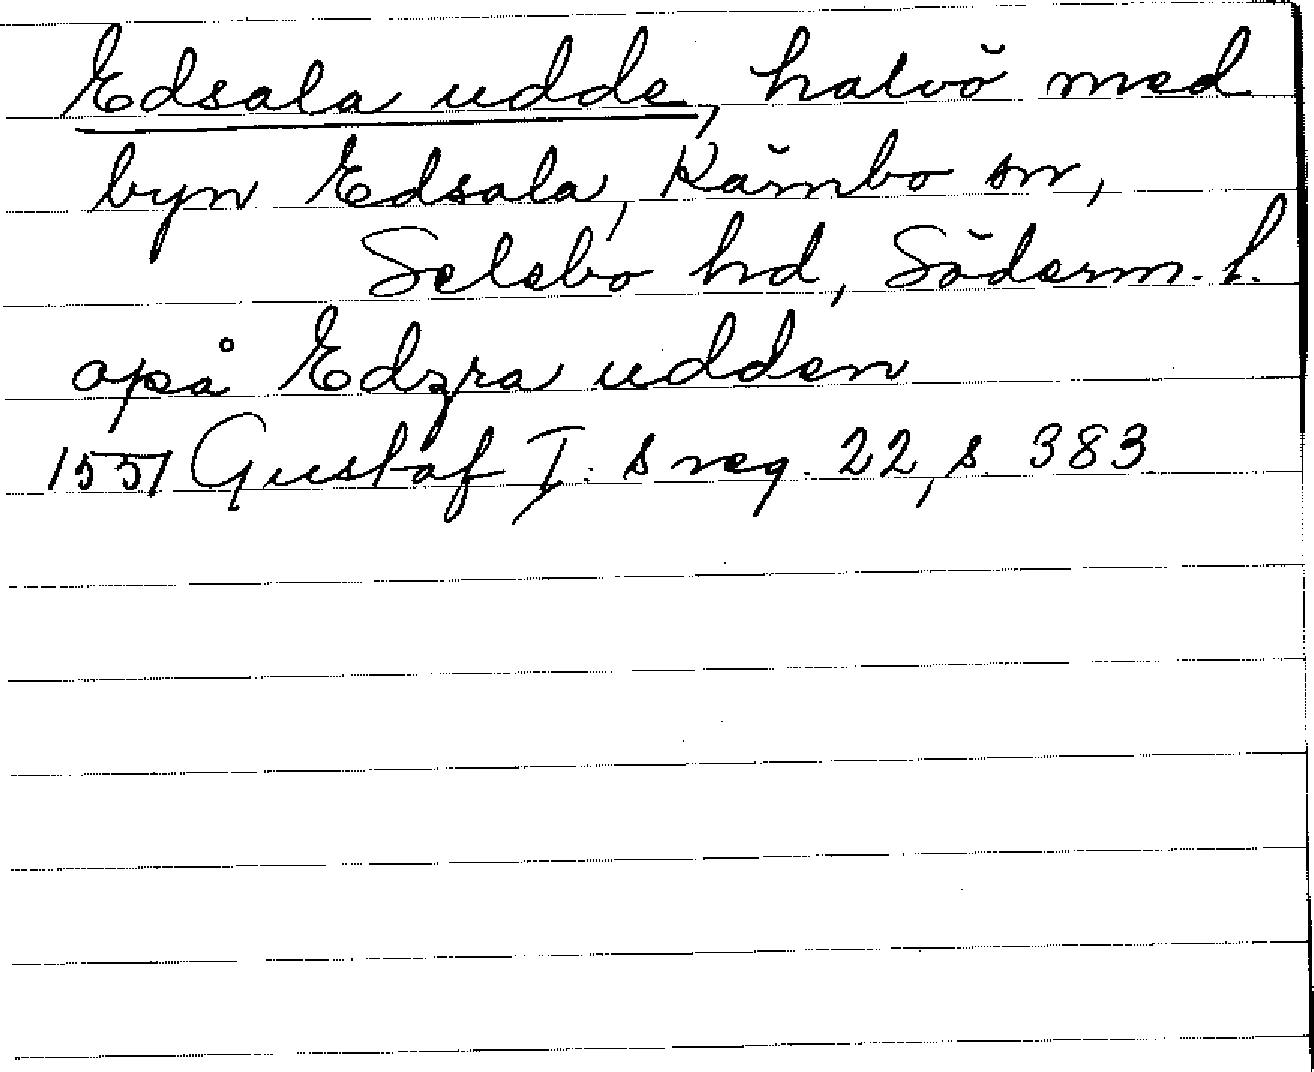 Edsala udde, halvö med
byn Edsala, Kärnbo sn,
Selebo hd, Söderm. l.
opå Edzra udden
1551 Gustaf I:s reg. 22, s. 383